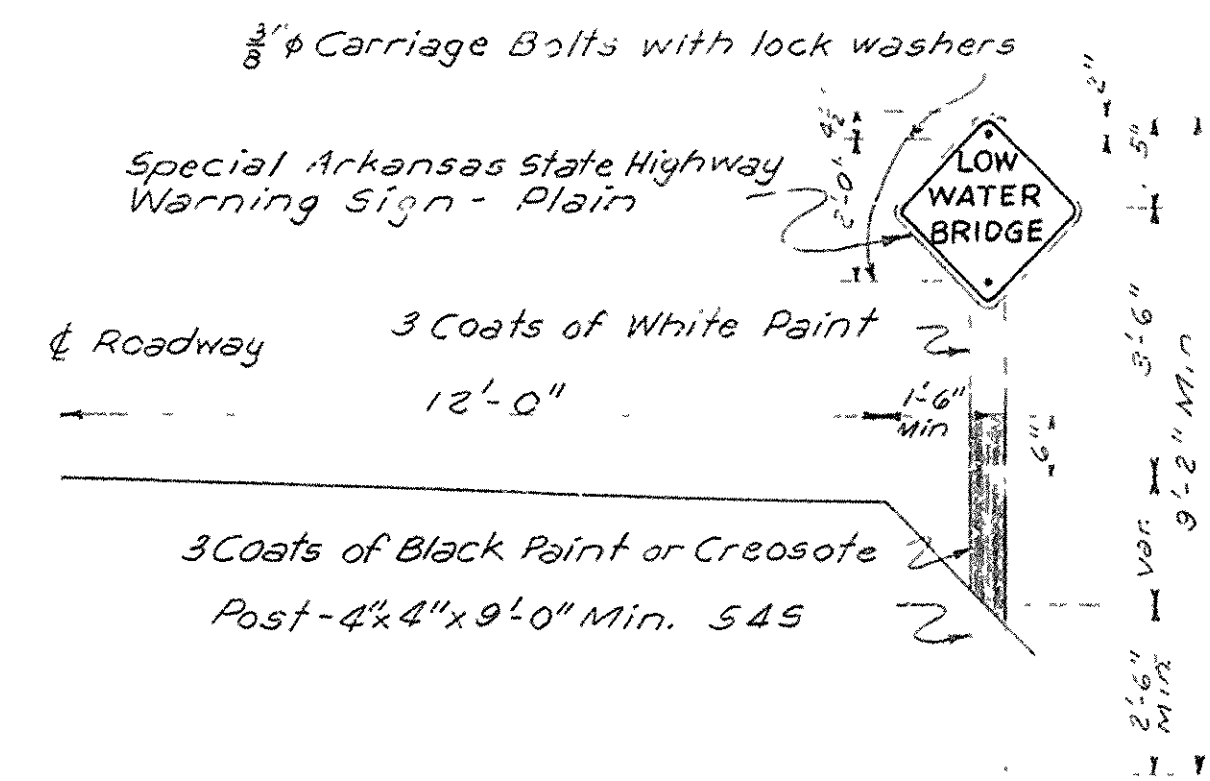 3/8"φ Carriage Bolts with lock washers
2"
4½"
5"
Special Arkansas State Highway
Warning Sign - Plain
2'-0"
LOW
WATER
BRIDGE
3'-6"
9'-2" Min
℄ Roadway
3 Coats of White Paint
12'-0"
1'-6"
Min
6"
3 Coats of Black Paint or Creosote
Var.
Post-4"x4"x9'-0" Min. S4S
2'-6"
Min.